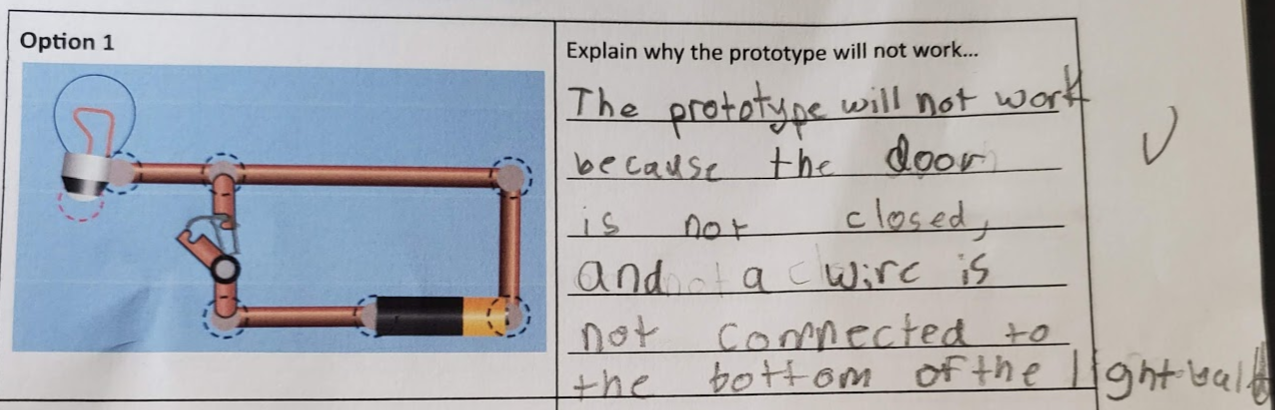 Option 1
Explain why the prototype will not work...
The prototype will not work
because the door
is not closed,
and a wire is
not connected to
the bottom of the lightbalb